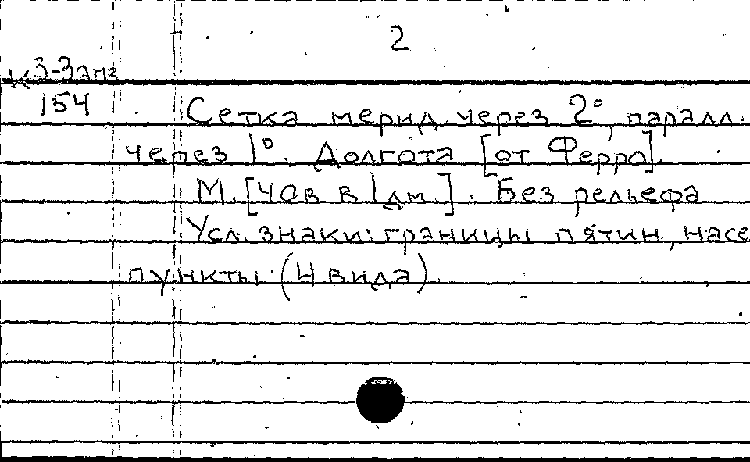 2
К3-Занг
154
Сетка мерид. через 2°, паралл.
через 1°. Долгота [от Ферро].
М. [40в в 1 дм.]. Без рельефа
Усл. знаки: границы пятин, насе
пункты (4 вида).